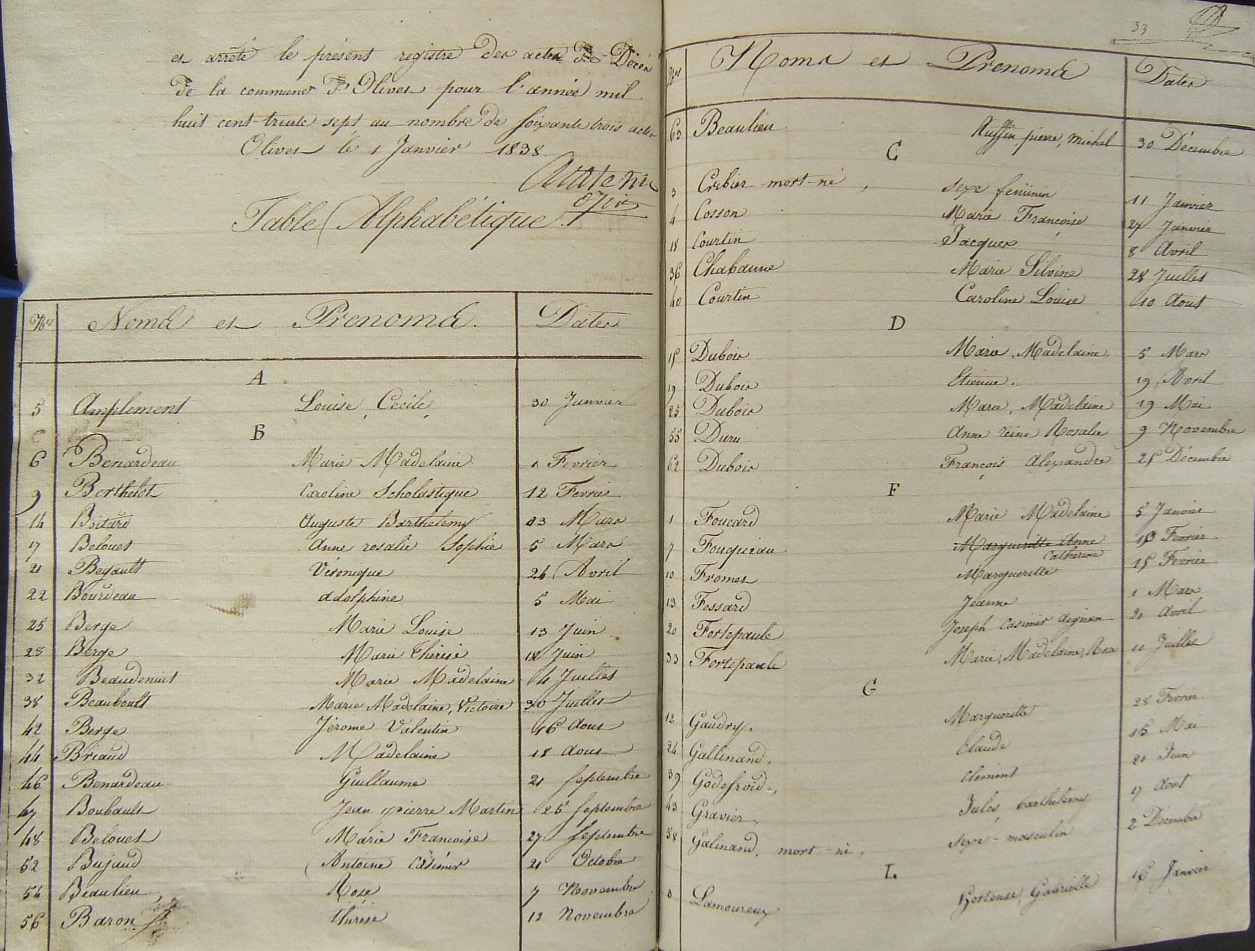 et arrêté le présent registre des actes de Décès
de la commune d'Olivet pour l'année mil
huit cent trente sept au nombre de soixante trois actes
Olivet le 1 Janvier 1838.
Table Alphabétique.
Nos Noms et Prenoms. Dates
A
5 Amplement Louise, Cécile 30 Janvier
B
6 Benardeau Marie Madelaine 1 Fevrier
9 Berthelot Caroline Scholastique 12 Fevrier
14 Boitard Auguste Barthelemy 23 Mars
17 Belouet Anne rosalie Sophie 5 Mars
21 Begault Veronique 26 Avril
22 Bourdeau adolphine 5 Mai
25 Berge Marie Louise 13 Juin
28 Berge Marie Thérèse 18 Juin
32 Beaudenuit Marie Madelaine 4 Juillet
38 Beauboult Marie Madelaine, Victoire 30 Juillet
42 Berge Jérome Valentin 16 Aout
44 Briaud Madelaine 18 Aout
46 Benardeau Guillaume 21 Septembre
47 Boubault Jean pierre Martin 25 Septembre
48 Belouet Marie Francoise 27 Septembre
52 Bujaud Antoine Casimir 21 Octobre
54 Beaulieu Rose 7 Novembre
56 Baron thérèse 12 Novembre
33
Nos Noms et Prenoms Dates
63 Beaulieu Ruffin pierre, Michel 30 Décembre
C
3 Cribier mort-né, sexe feminin 11 Janvier
4 Cosson Marie Françoise 27 Janvier
18 Courtin Jacques 8 Avril
36 Chabanne Marie Silvine 28 Juillet
40 Courtin Caroline Louise 10 Aout
D
15 Dubois Marie, Madelaine, 5 Mars
19 Dubois Etienne. 19 Avril
25 Dubois Marie, Madelaine 19 Mai
55 Duru Anne reine Rosalie 9 Novembre
62 Dubois François Alexandre 25 Décembre
F
1 Foucard Marie Madelaine 5 Janvier
7 Fouqueau Marguerite Anne 13 Fevrier
Catherine
10 Fromet Marguerite 15 Fevrier
13 Fessard Jeanne 1 Mars
20 Fortepaule Joseph Casimir aignan 21 Avril
33 Fortepaule Marie, Madelaine, Rose 10 Juillet
G
12 Gaudry, Marguerite 25 Fevrier
24 Gallinand. Claude 15 Mai
39 Godefroid, clément 21 Juin
43 Gravier, Jules barthelemy 17 Aout
58 Galinand, mort-né, sexe masculin 2 Décembre
L
Lamoureux Hortense, Gabrielle 16 Janvier